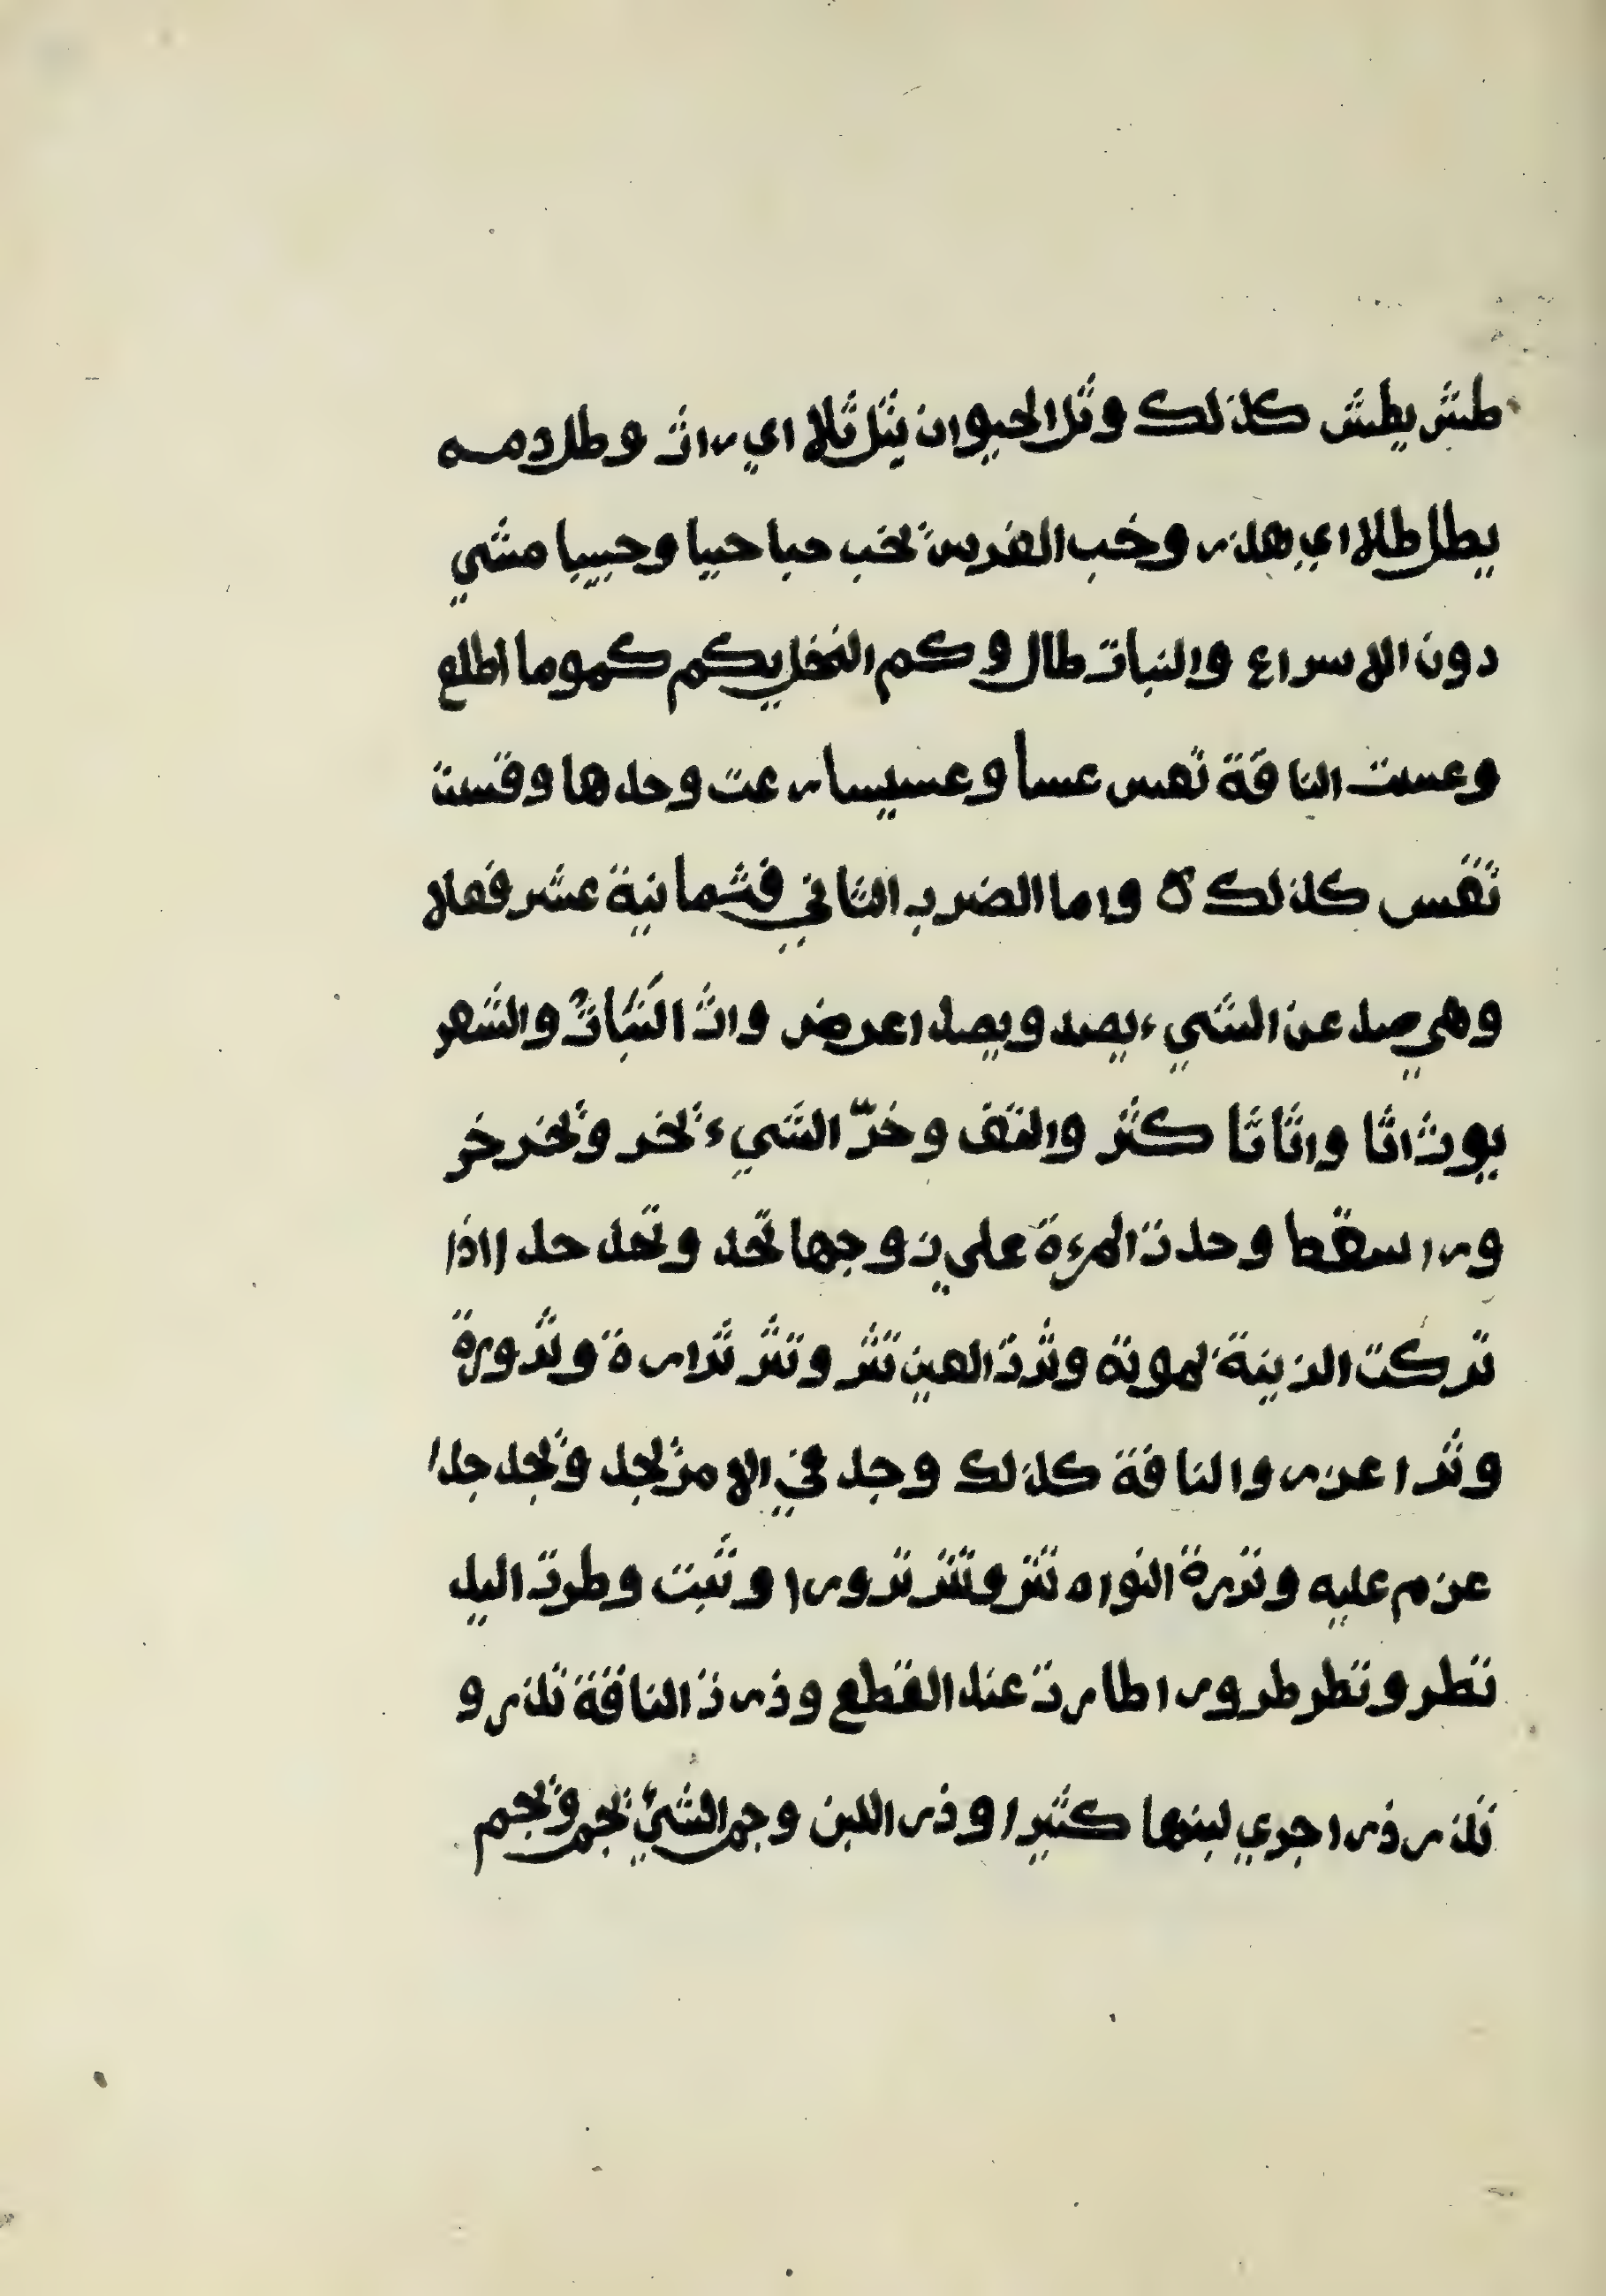 طش يطش كذلك وثل الحيوان يثل ثلا اي راث وطل دمه
يطل طلا اي هدر وخب الفرس نخب حبا حبيا وحبيبا مشي
دون الاسراع والنبات طال وكم النخل يكم كموما اطلع
وعست الناقة تعس عسا وعسيسا رعت وحدها وقست
تقس كذلك ٥ واما الضرب الثاني فثمانية عشر فعلا
وهي صد عن الشيء يصد ويصد اعرض واث النباتُ والشعر
يوث اثا واثاثا كثر والتف وخرّ الشيء تخر وتخر خر
ورا سقط وحدت المرءة علي زوجها تحد وتحد حد ااذا
تركت الزينة لموته وثرت العين تثر وتثر ثرارة وثرورة
وثرا عزر والناقة كذلك وجد في الامر تجد وتجد جدا
عزم عليه وترة النواه تتر وتتر ترورا وثبت وطرت اليد
تطر وتطر طرورا طارت عند القطع وذرت الناقة تذر و
تذر ذرا جري لبنها كثيرا وذر اللبن وجم الشيئ تجم وتجم